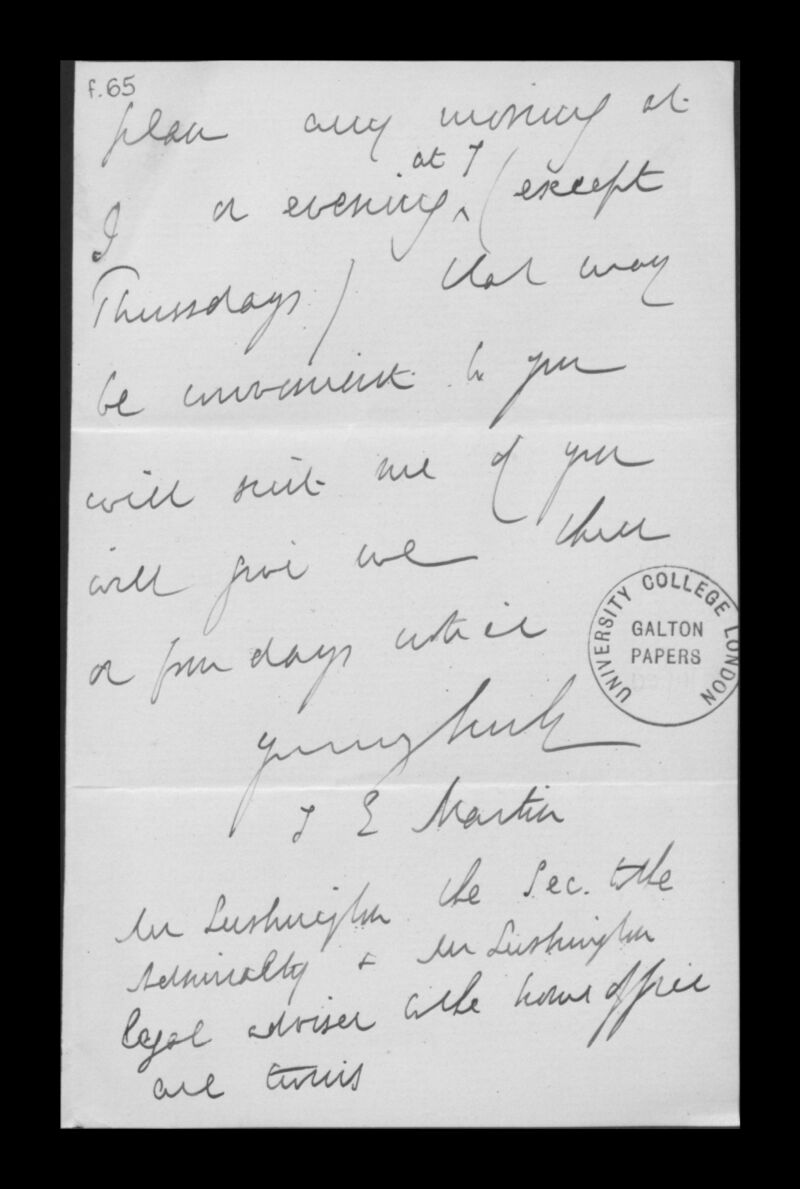 f.65
plan any morning at
at 7
or evening ‸ (except
Thursdays) that may
be convenient to you
will suit me if you
will give me three
or four days notice
yours truly
E Martin
Mr Lushington the Sec. to the
Admiralty & Mr Lushington
legal adviser to the home office
are twins
UNIVERSITY COLLEGE LONDON
GALTON
PAPERS